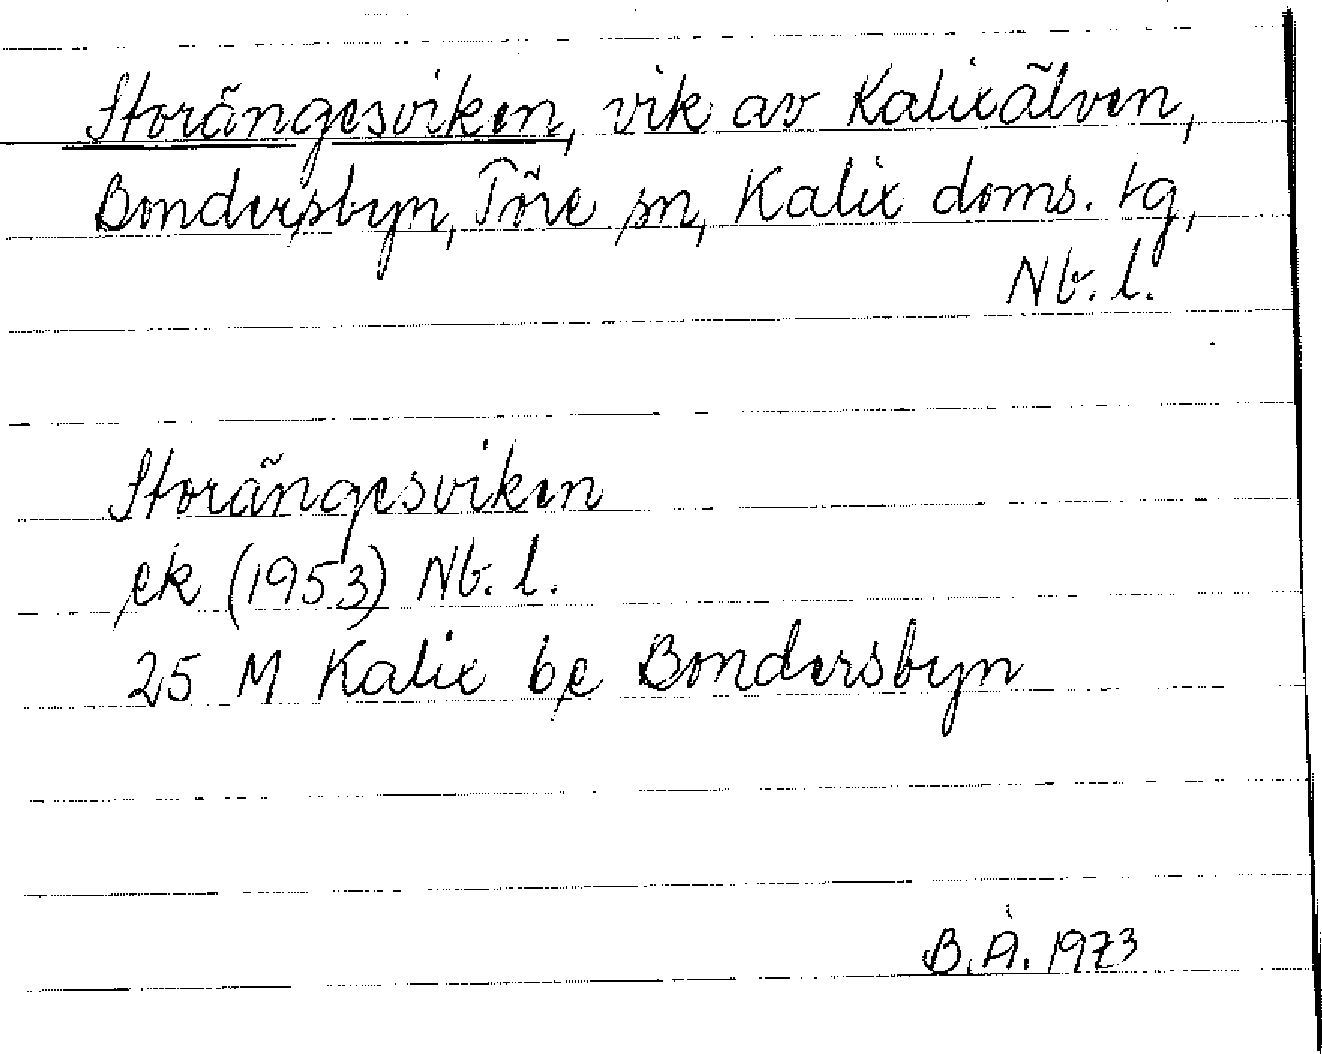 Storängesviken, vik av Kalixälven,
Bondersbyn, Töre sn, Kalix doms. tg,
Nb. l.
Storängesviken
ek (1953) Nb. l.
25 M Kalix 6e Bondersbyn
B.Å. 1973